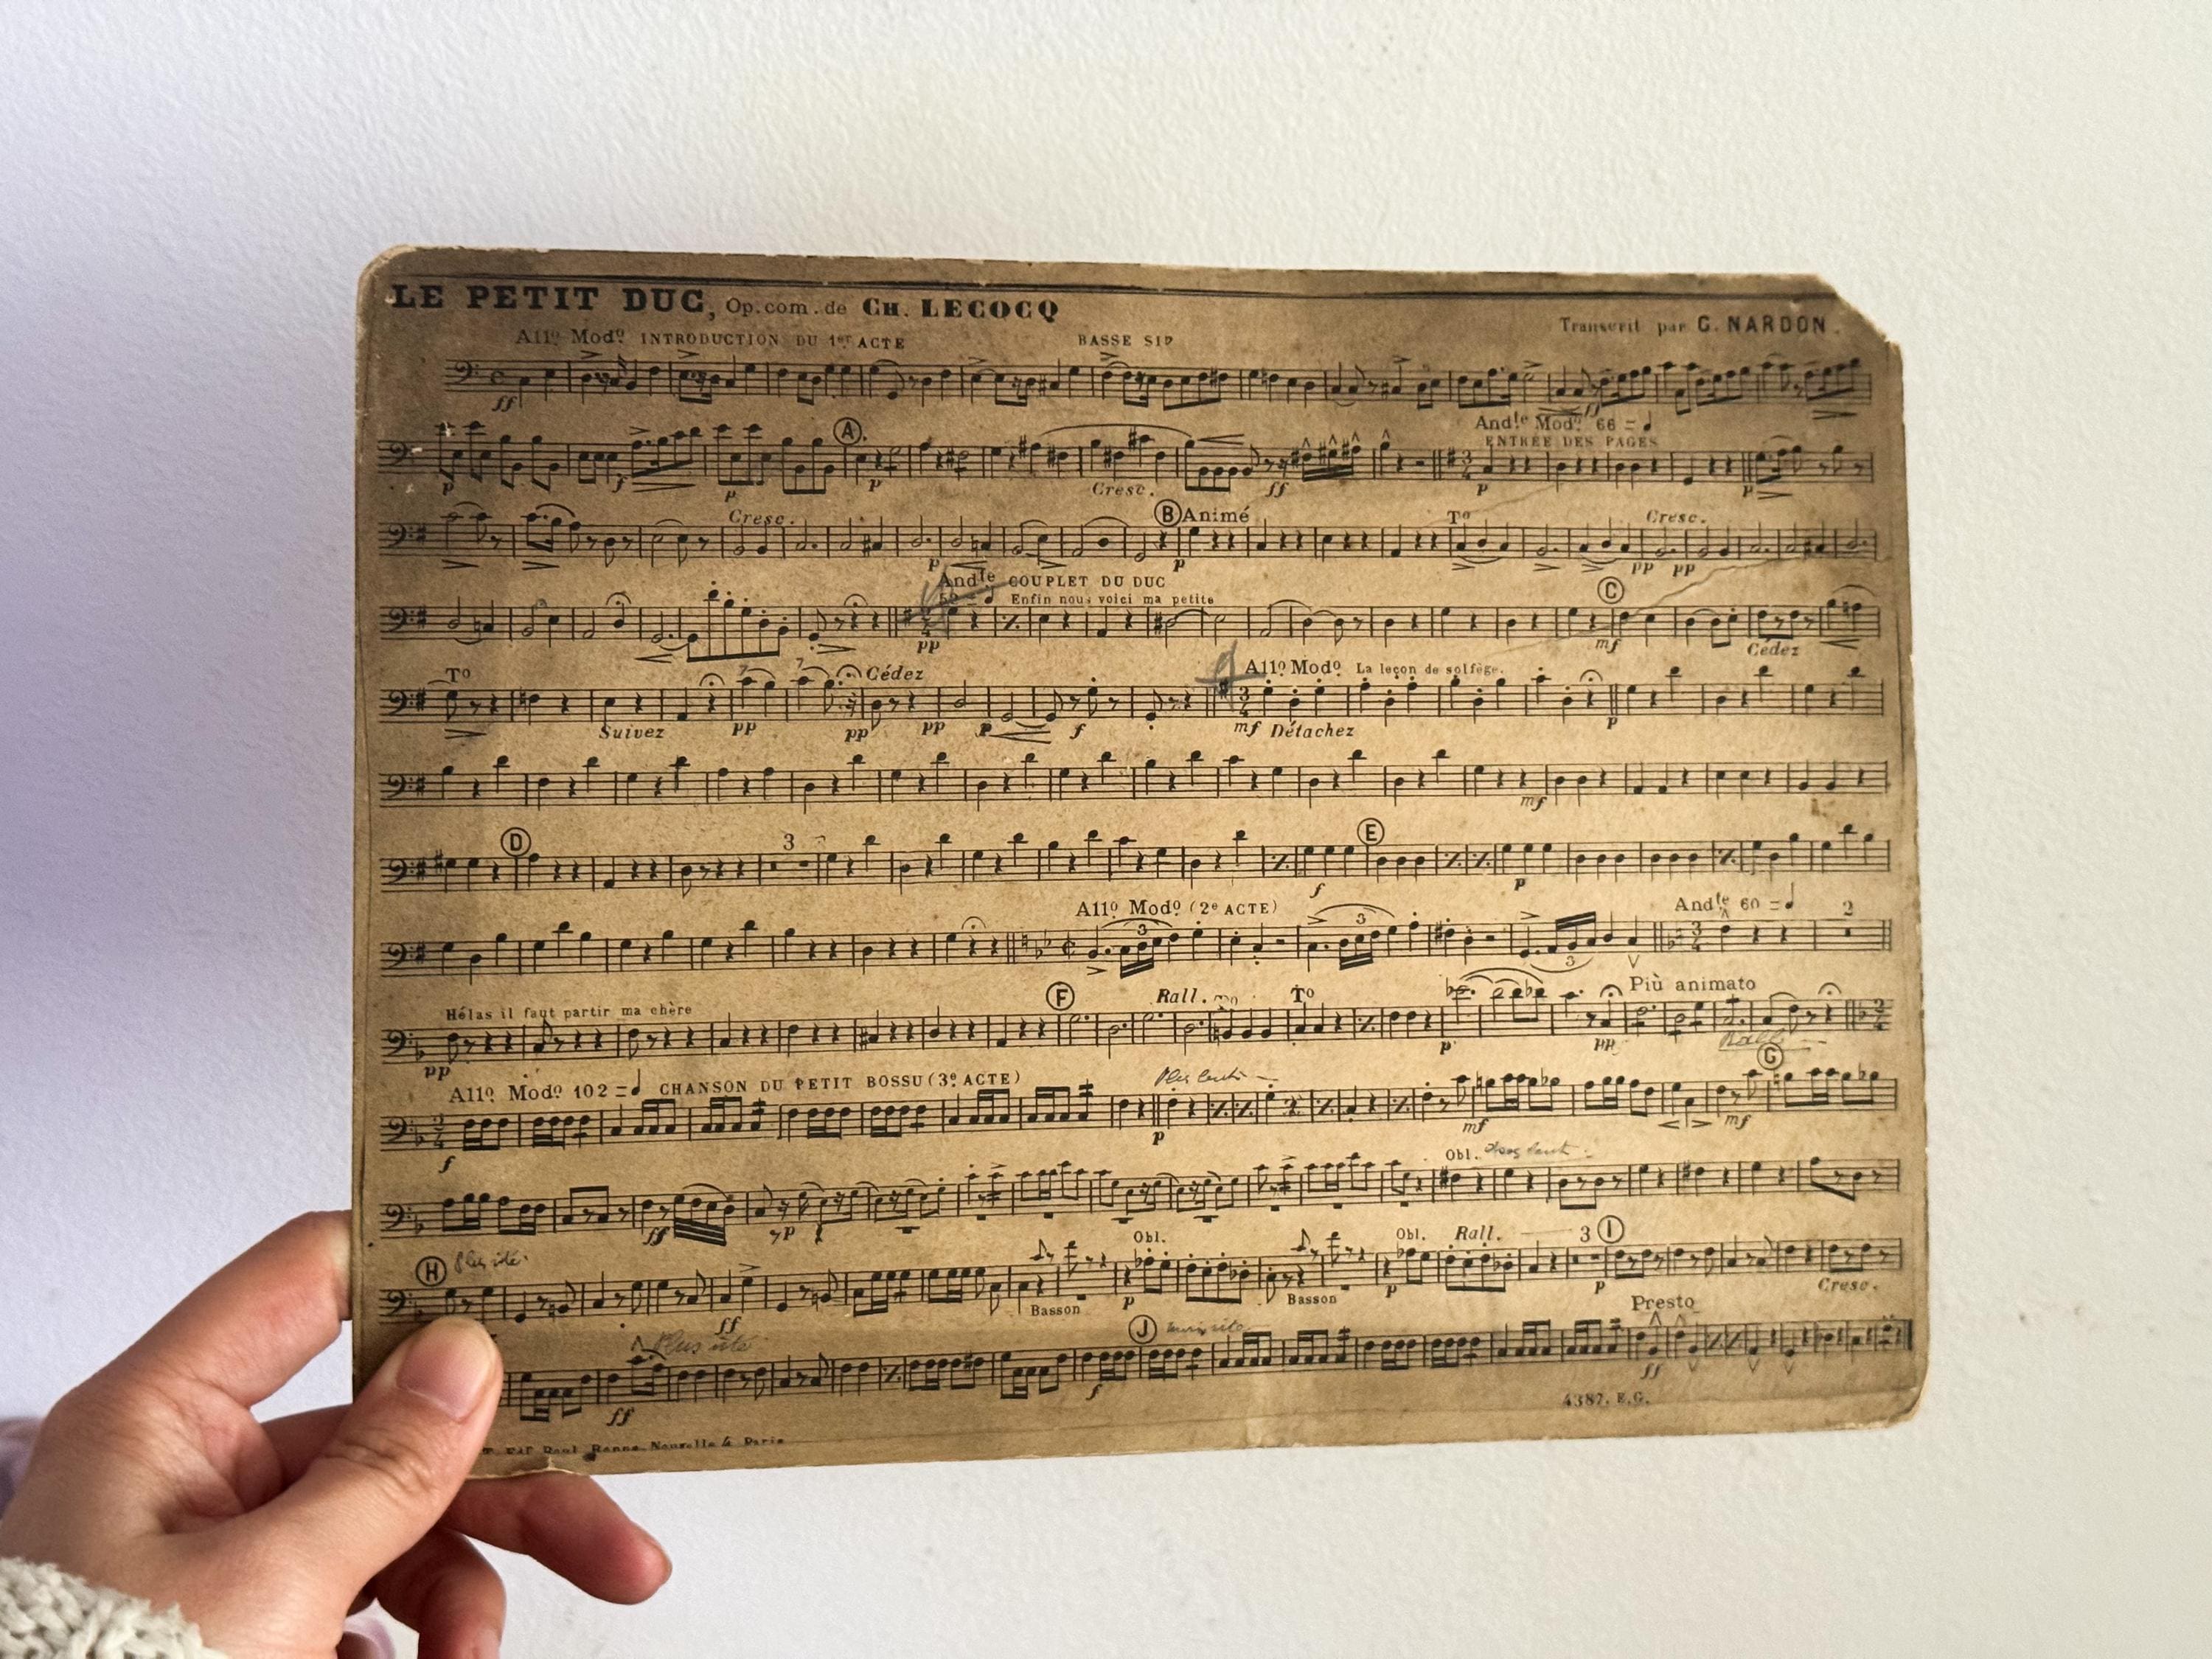 LE PETIT DUC, Op. com. de CH. LECOCQ
Transcrit par G. NARDON.
All⁰ Mod⁰ INTRODUCTION DU 1er ACTE BASSE SI♭
ff ff
A And.te Mod⁰ 66 = ♩
ENTRÉE DES PAGES
p f p p Cresc. ff p p
Cresc. B Animé T⁰ Cresc.
p p pp pp
And.te COUPLET DU DUC C
52 = ♩ Enfin nous voici ma petite
pp mf Cédez
T⁰ 7 7 Cédez All⁰ Mod⁰ La leçon de solfège.
3
4
Suivez pp pp pp p f mf Détachez p
mf
D 3 E
f p
All⁰ Mod⁰ (2e ACTE) And.te 60 = ♩ 2
3 3 3
3
4
Hélas il faut partir ma chère F Rall. T⁰ Più animato
pp p pp Rall
2
4
All⁰ Mod⁰ 102 = ♩ CHANSON DU PETIT BOSSU (3e ACTE) Plus lent G
2
4
f p mf mf
Obl. lent
ff p
H Plus vite Obl. Obl. Rall. 3 I
ff Basson p Basson p p Cresc.
Plus vite J vite Presto
ff f ff
4387. E.G.
Bonne-Nouvelle 4 Paris